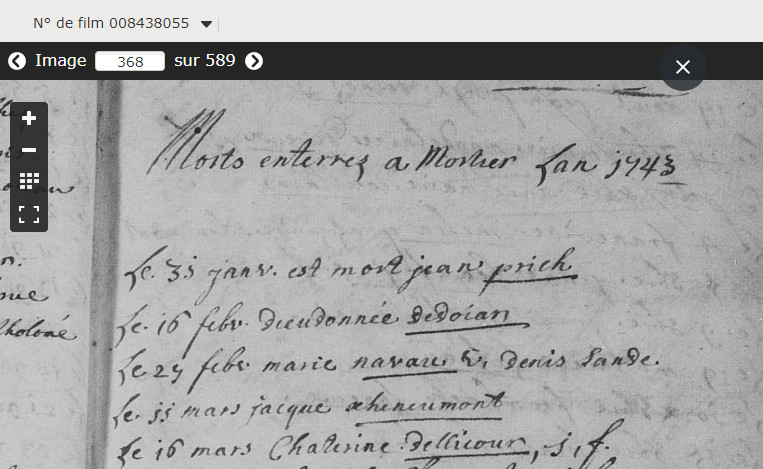 N° de film 008438055
Image 368 sur 589
Morts enterrez a Mortier Lan 1743
Le 31 janv. est mort jean prich
Le 16 febv. dieudonnée dedoian
Le 27 febv marie navau v, denis Lande.
Le 11 mars jacque xheneumont
Le 16 mars Chaterine dellicour, j, f.
n.
nue
tholomé